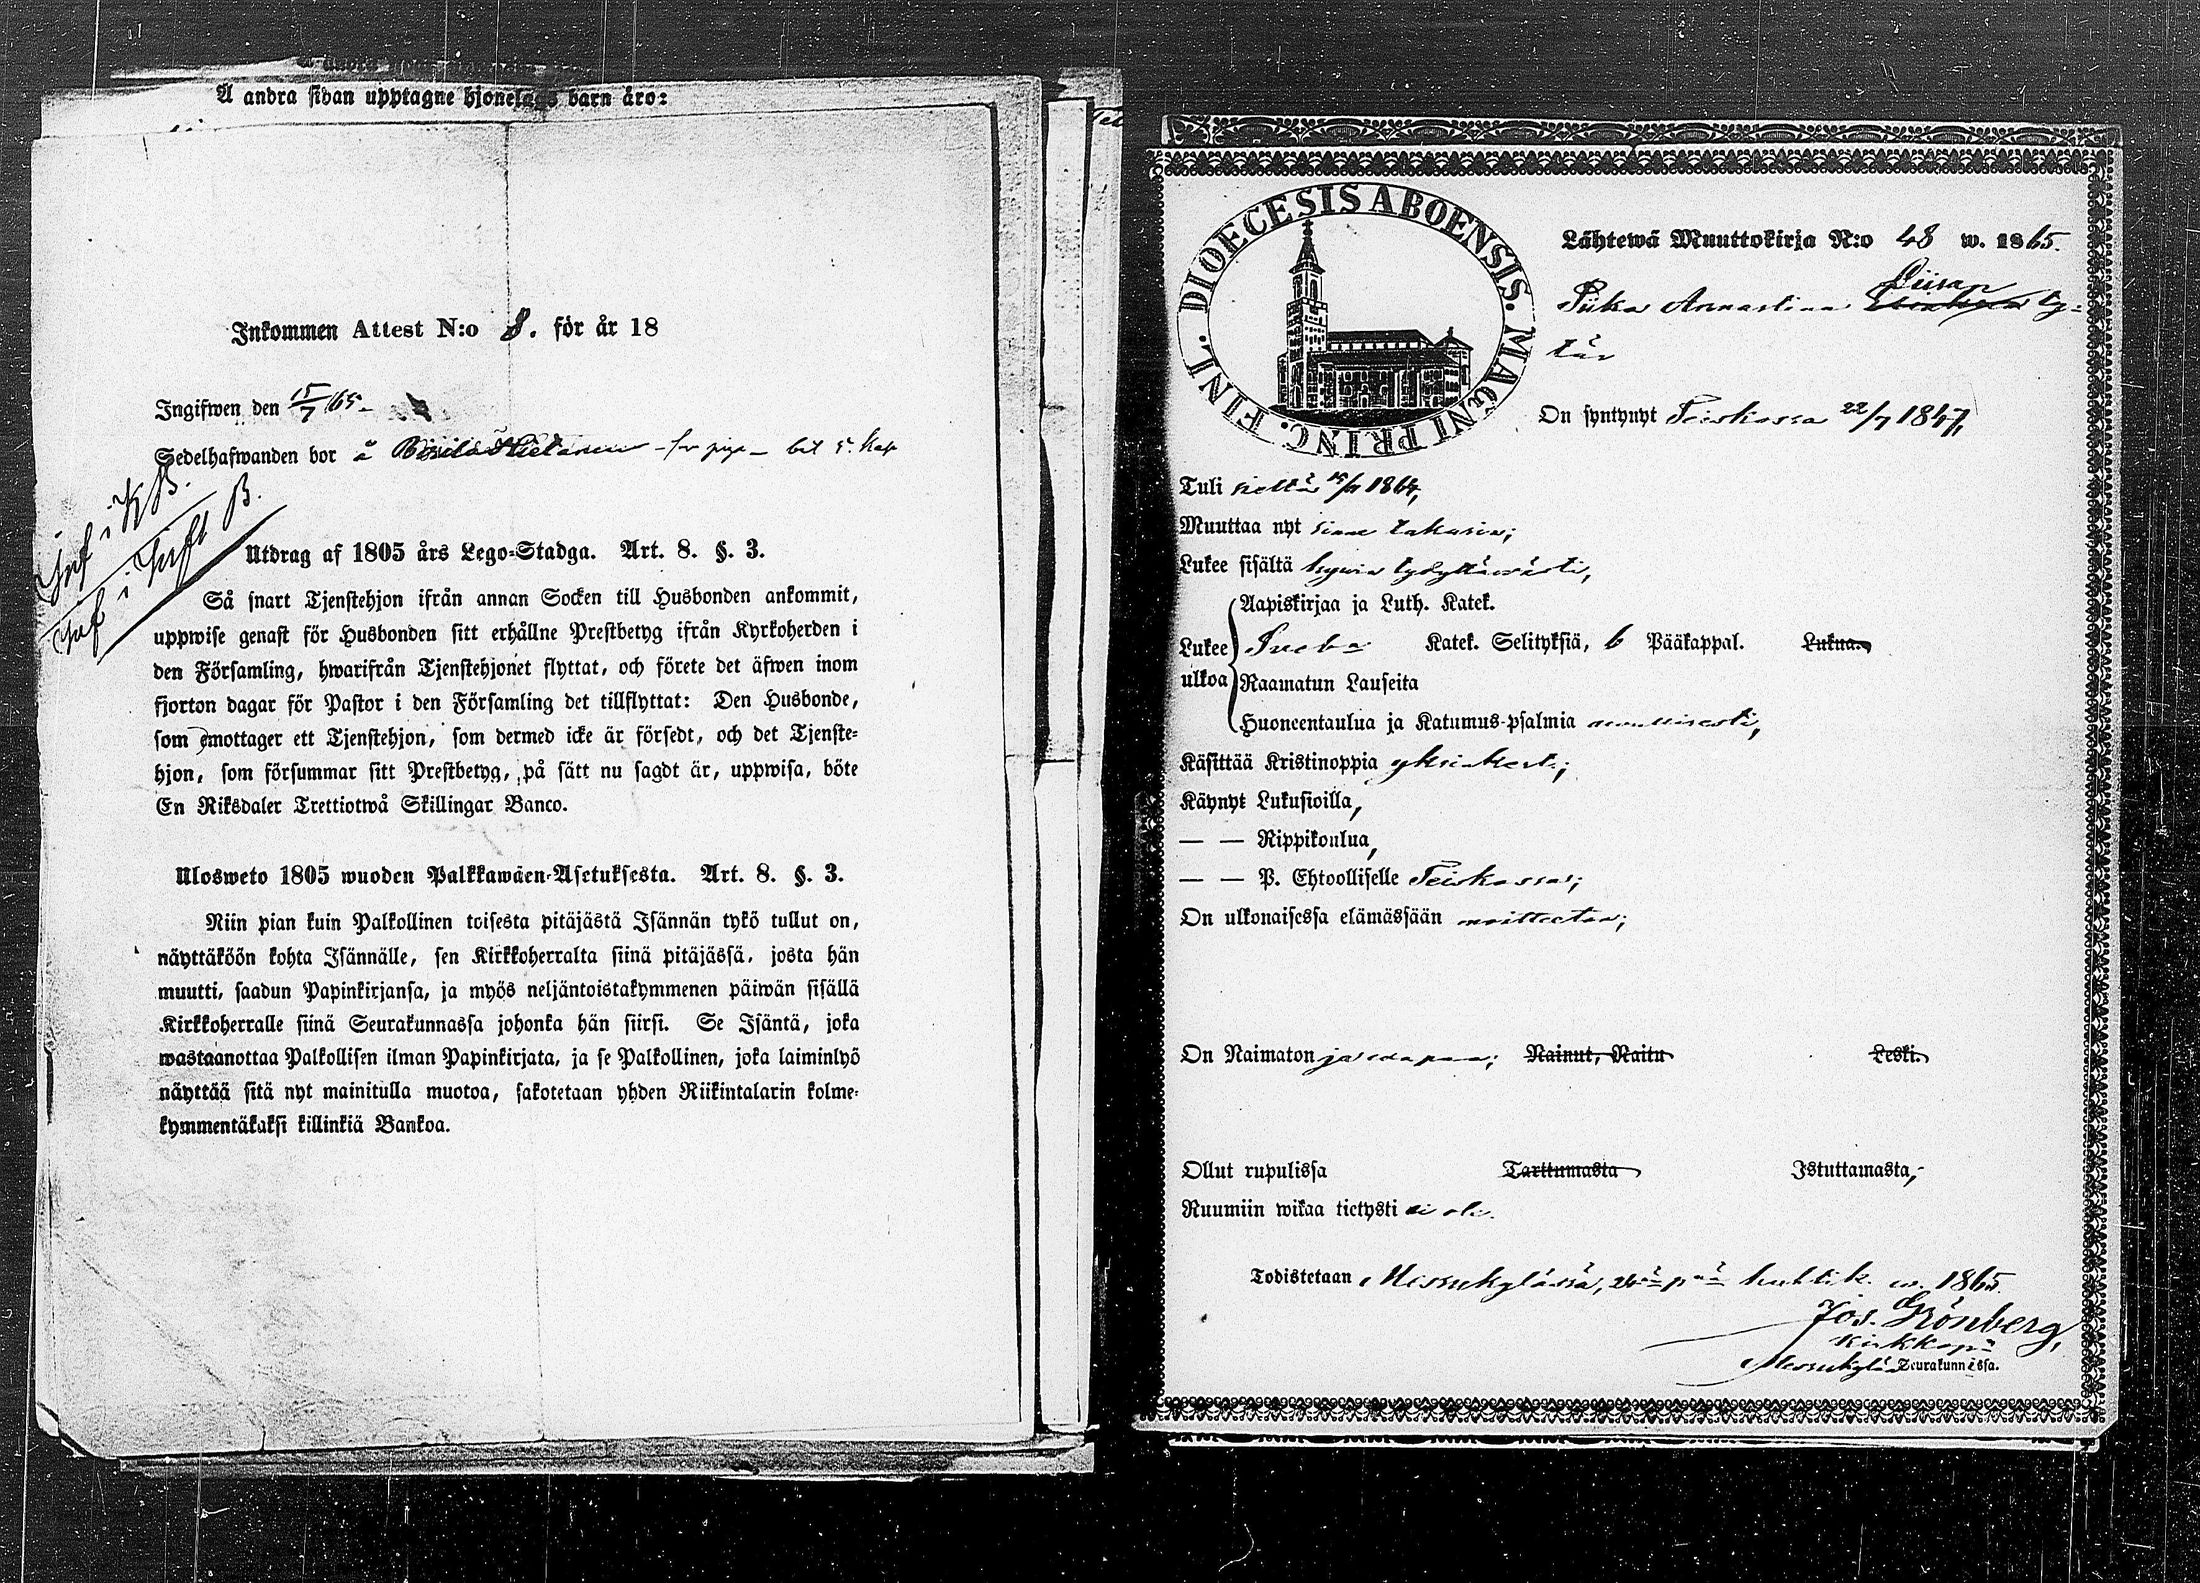 Å andra sidan upptagne hjonelags barn äro:
Inkommen Attest N:o 8. för år 18
Ingifwen den 15/7 65.
Sedelhafwanden bor å
Inf i K B.
Inf i Infl B.
Utdrag af 1805 års Lego-Stadga. Art. 8. §. 3.
Så snart Tjenstehjon ifrån annan Socken till Husbonden ankommit,
uppwise genast för Husbonden sitt erhållne Prestbetyg ifrån Kyrkoherden i
den Församling, hwarifrån Tjenstehjonet flyttat, och förete det äfwen inom
fjorton dagar för Pastor i den Församling det tillflyttat: Den Husbonde,
som emottager ett Tjenstehjon, som dermed icke är försedt, och det Tjenste-
hjon, som försummar sitt Prestbetyg, på sätt nu sagdt är, uppwisa, böte
En Riksdaler Trettiotwå Skillingar Banco.
Ulosweto 1805 wuoden Palkkawäen-Asetuksesta. Art. 8. §. 3.
Niin pian kuin Palkollinen toisesta pitäjästä Isännän tykö tullut on,
näyttäköön kohta Isännälle, sen Kirkkoherralta siinä pitäjässä, josta hän
muutti, saadun Papinkirjansa, ja myös neljäntoistakymmenen päiwän sisällä
Kirkkoherralle siinä Seurakunnassa johonka hän siirsi. Se Isäntä, joka
wastaanottaa Palkollisen ilman Papinkirjata, ja se Palkollinen, joka laiminlyö
näyttää sitä nyt mainitulla muotoa, sakotetaan yhden Riikintalarin kolme-
kymmentäkaksi killinkiä Bankoa.
DIOECESIS ABOENSIS. MAGNI PRINC. FINL.
Lähtewä Muuttokirja N:o 48 w. 1865.
Piika Annastiina Liisan ty-
tär
On syntynyt Teiskossa 22/7 1847,
Tuli sieltä 1864,
Muuttaa nyt sinne takasin;
Lukee sisältä hywin tydyttäwästi,
Aapiskirjaa ja Luth. Katek.
Lukee Sveb. Katek. Selityksiä, 6 Pääkappal. Lukua.
ulkoa Raamatun Lauseita
Huoneentaulua ja Katumus-psalmia
Käsittää Kristinoppia yksinkert.;
Käynyt Lukusioilla,
— — Rippikoulua,
— — P. Ehtoolliselle Teiskossa;
On ulkonaisessa elämässään moitteeton;
On Naimaton ja wapaa; Nainut, Naitu Leski.
Ollut rupulissa Tarttumasta Istuttamasta,
Ruumiin wikaa tietysti ei ole.
Todistetaan Messukylässä, 24nä pnä huhtik. w. 1865.
Jos. Grönberg,
Kirkkop
Messukylän Seurakunnassa.